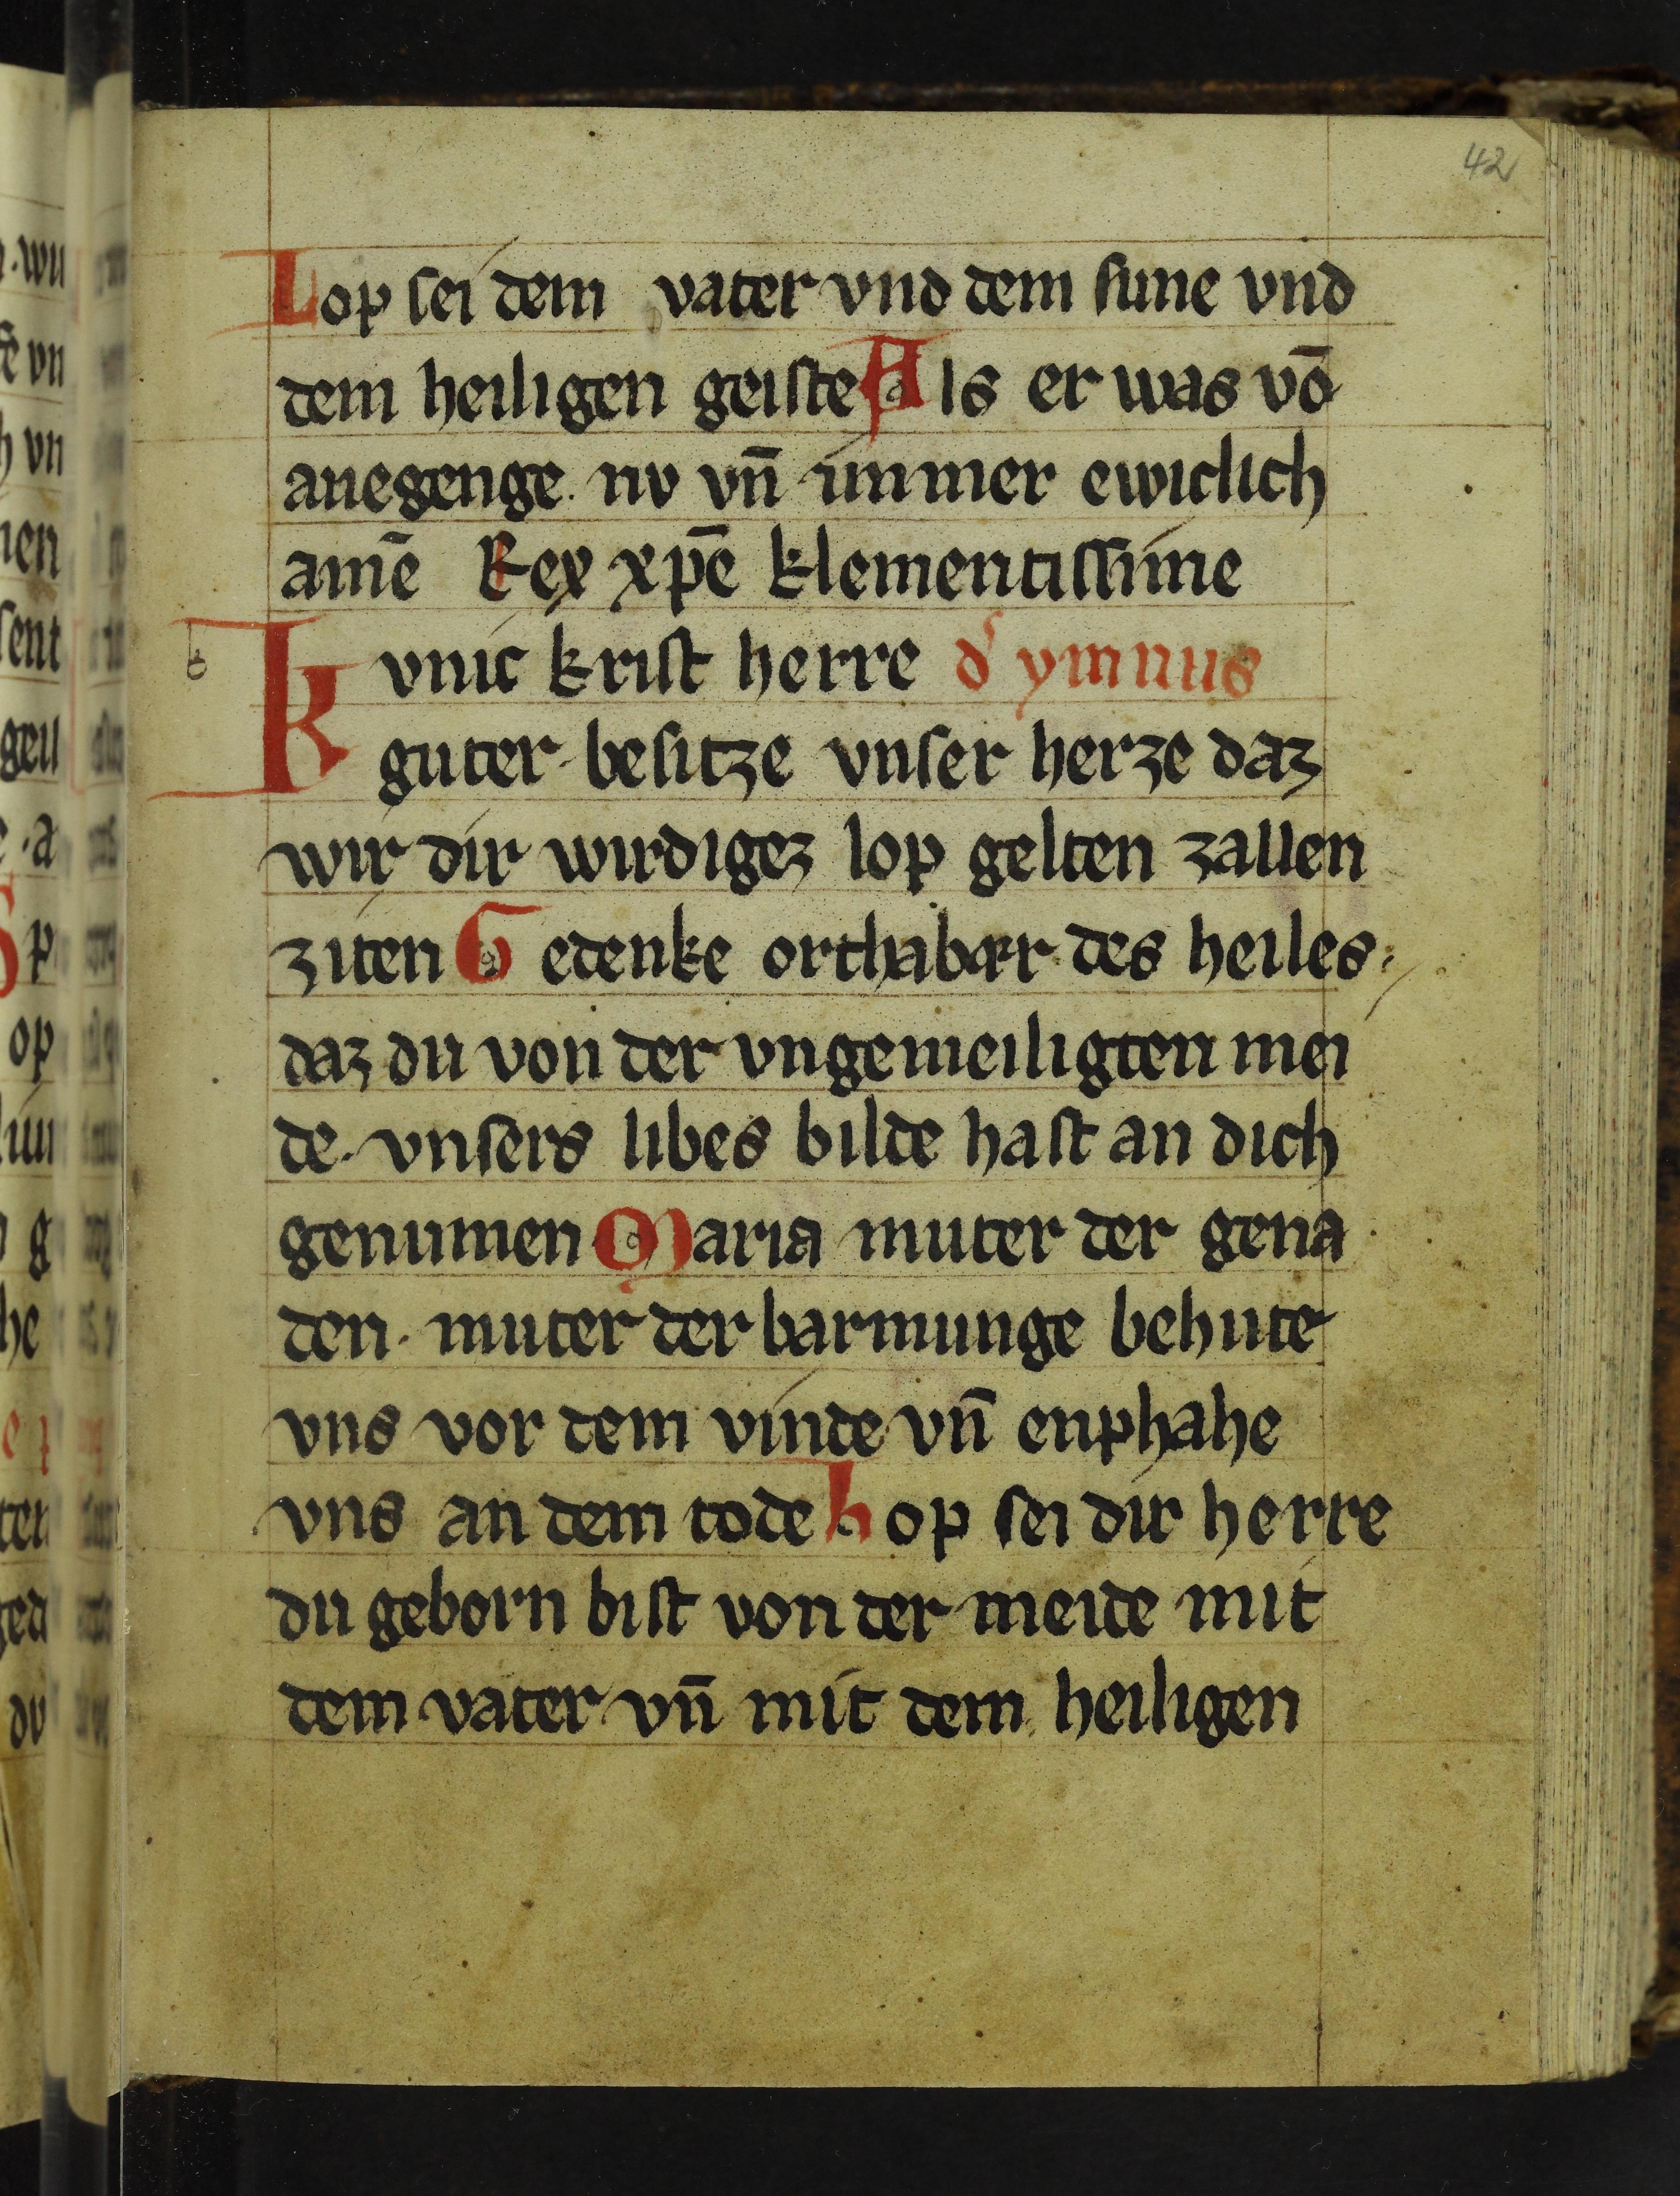 42
Lop sei dem vater vnd dem sune vnd
dem heiligen geiste Als er was vō
anegenge. nv vn̄ immer ewiclich
amē Rex xp̄e klementissime
kvnic krist herre d᷑ ymnus
guter besitze vnser herze daz
wir dir wirdigez lop gelten zallen
ziten Gedenke orthabær des heiles.
daz du von der vngemeiligten mei
de. vnsers libes bilde hast an dich
genumen Maria muter der gena
den. muter der barmunge behute
vns vor dem vinde vn̄ enphahe
vns an dem tode Lop sei dir herre
du geborn bist von der meide mit
dem vater vn̄ mit dem heiligen